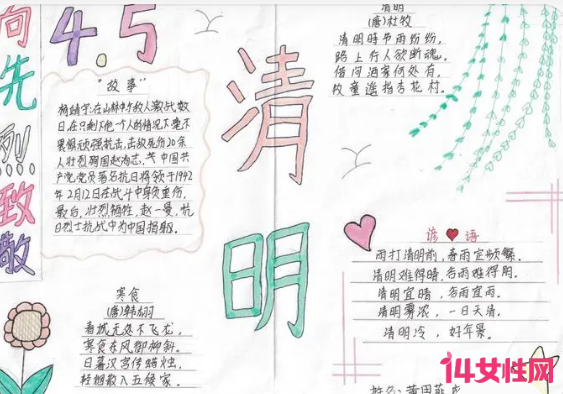 向先烈!!!致敬
4.5
"故事"
杨靖宇:在山林中与敌人激战数
日在只剩下他一个人的情况下毫不
畏惧顽强抗击,击毙敌伤20余
人壮烈殉国赵尚志,共中国共
产党党员著名抗日将领于1942
年2月12日在战斗中身负重伤,
最后,壮烈牺牲,赵一曼,抗
日烈士抗战中为中国捐躯。
寒食
(唐)韩翃
春城无处不飞
寒食东风御柳斜。
日暮汉宫传蜡烛,
轻烟散入五侯家。
清明
清明
(唐)杜牧
清明时节雨纷纷,
路上行人欲断魂。
借问酒家何处有,
牧童遥指杏花村。
谚语
雨打清明前,春雨定频繁。
清明难得晴,谷雨难得阴。
清明宜晴,谷雨宜雨。
清明雾浓,一日天清。
清明冷,好年景。
14女性网